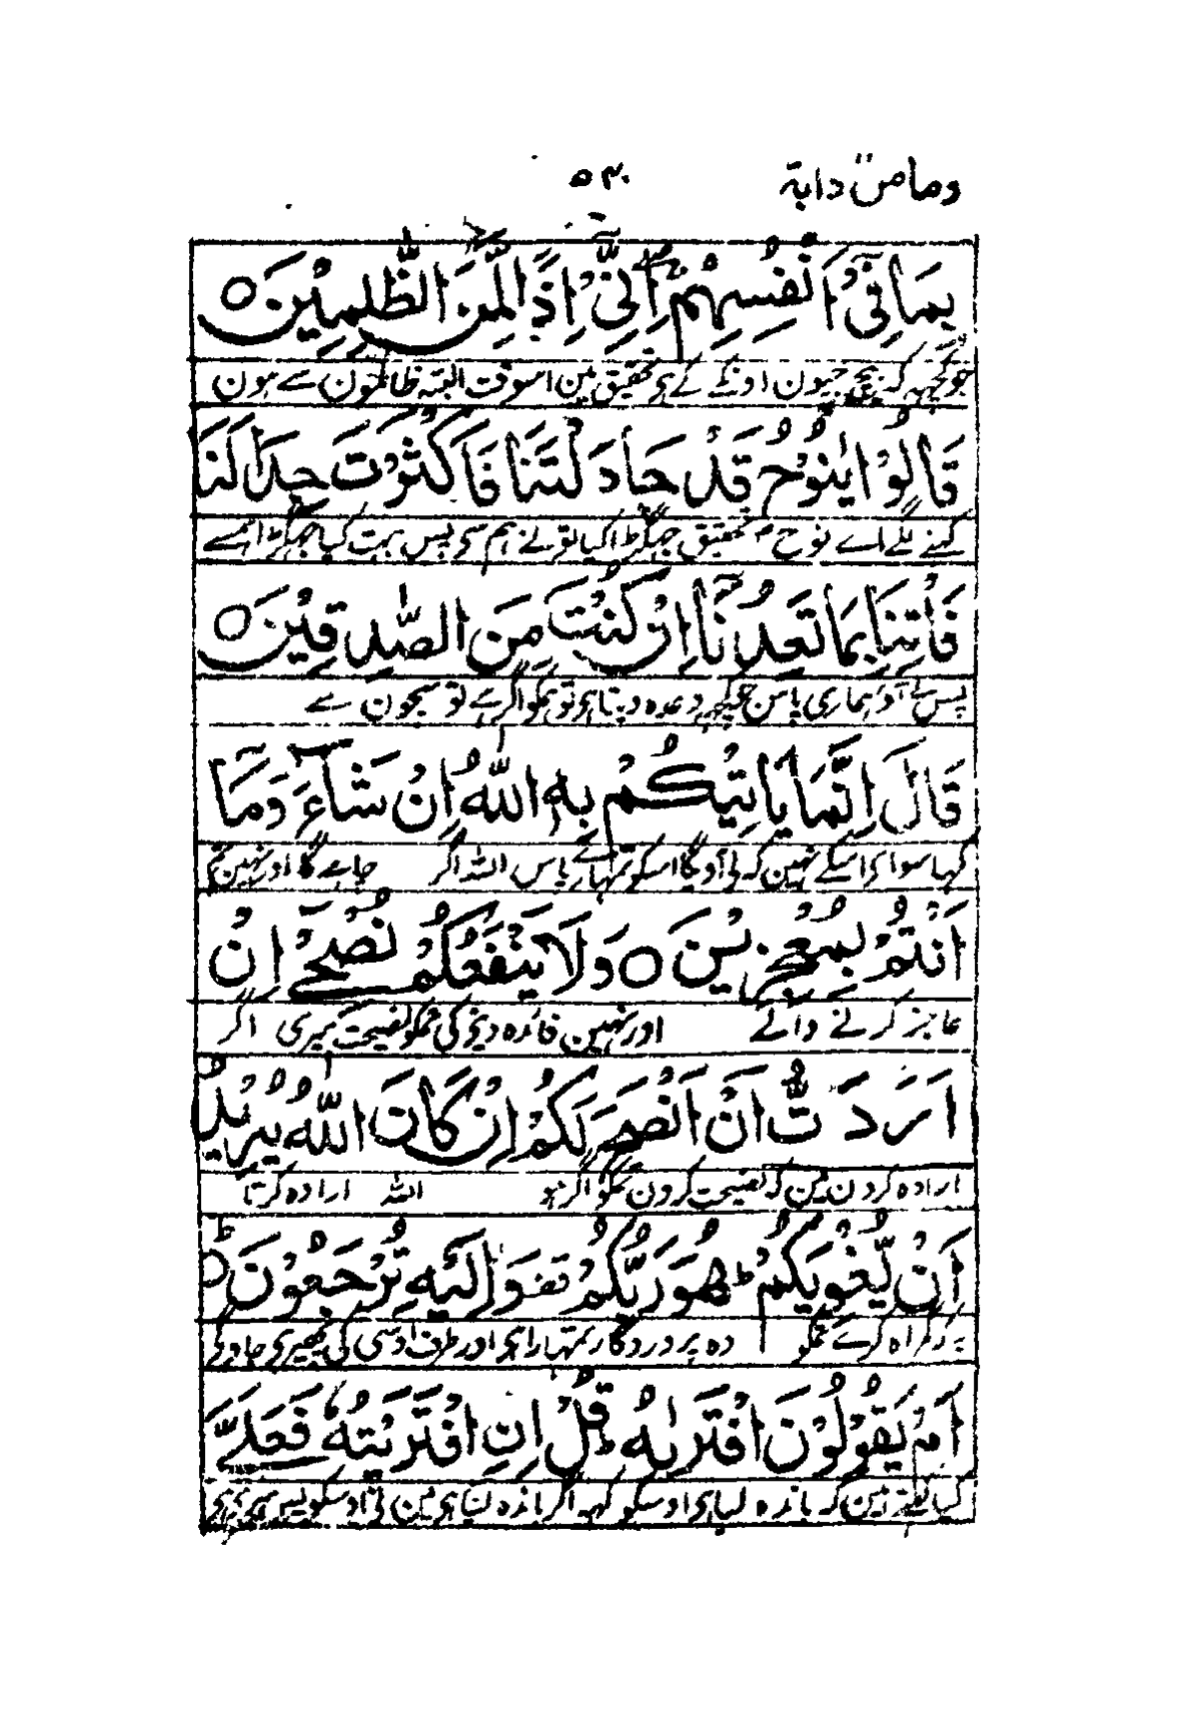 ومامن دابة ۵۴۰
بِمَا فِیْٓ اَنْفُسِهِمْ اِنِّیْٓ اِذًا لَّمِنَ الظّٰلِمِیْنَ ○
جو کچھہ کہ بیچ جیون اونکے کے ہی تحقیق مین اسوقت البتہ ظالمون سے ہون
قَالُوْا یٰنُوْحُ قَدْ جَادَلْتَنَا فَاَكْثَرْتَ جِدَالَنَا
کہنے لگے اے نوح تحقیق جہگڑا کیا تونے ہم سی پس بہت کیا جہگڑا ہمسے
فَاْتِنَا بِمَا تَعِدُنَآ اِنْ كُنْتَ مِنَ الصّٰدِقِیْنَ ○
پس لے آو ہماری پاس جو کچھہ وعدہ دیتا ہی تو ہمکو اگر ہے تو سچون سے
قَالَ اِنَّمَا یَاْتِیْكُمْ بِهِ اللّٰهُ اِنْ شَآءَ وَمَآ
کہا سواے اسکے نہین کہ لی آویگا اسکو تمہارے پاس اللہ اگر چاہے گا اور نہین تم
اَنْتُمْ بِمُعْجِزِیْنَ ○ وَلَا یَنْفَعُكُمْ نُصْحِیْٓ اِنْ
عاجز کرنے والے اور نہین فائدہ دیوی کی تمکو نصیحت میری اگر
اَرَدْتُّ اَنْ اَنْصَحَ لَكُمْ اِنْ كَانَ اللّٰهُ یُرِیْدُ
ارادہ کرون مین کہ نصیحت کرون تمکو اگر ہو اللہ ارادہ کرتا
اَنْ یُّغْوِیَكُمْ ؕ هُوَ رَبُّكُمْ وَاِلَیْهِ تُرْجَعُوْنَ ؕ
یہ کہ گمراہ کرے تمکو وہ پروردگار تمہارا ہی اور طرف اوسی کی پھیری جاوگی
اَمْ یَقُوْلُوْنَ افْتَرٰىهُ ؕ قُلْ اِنِ افْتَرَیْتُهٗ فَعَلَیَّ
کیا کہتے ہین کہ باندہ لیا ہی اوسکو کہہ اگر باندہ لیا ہی مین نی اوسکو پس